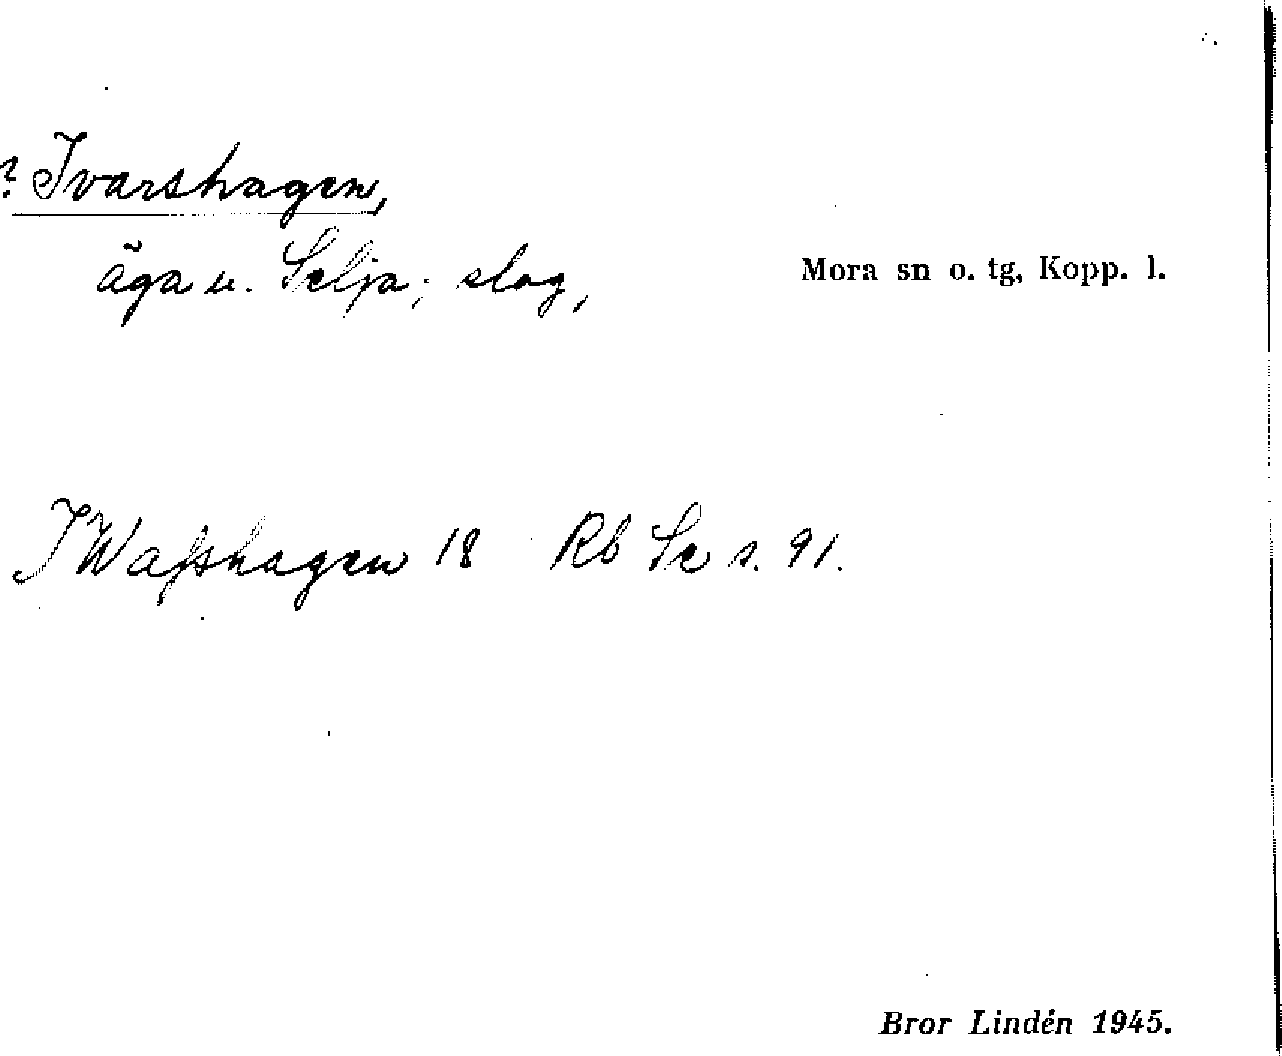 ? Ivarshagen,
äga u. Selja; slog,
Mora sn o. tg, Kopp. l.
IWasshagen 18 Rb Se s. 91.
Bror Lindén 1945.